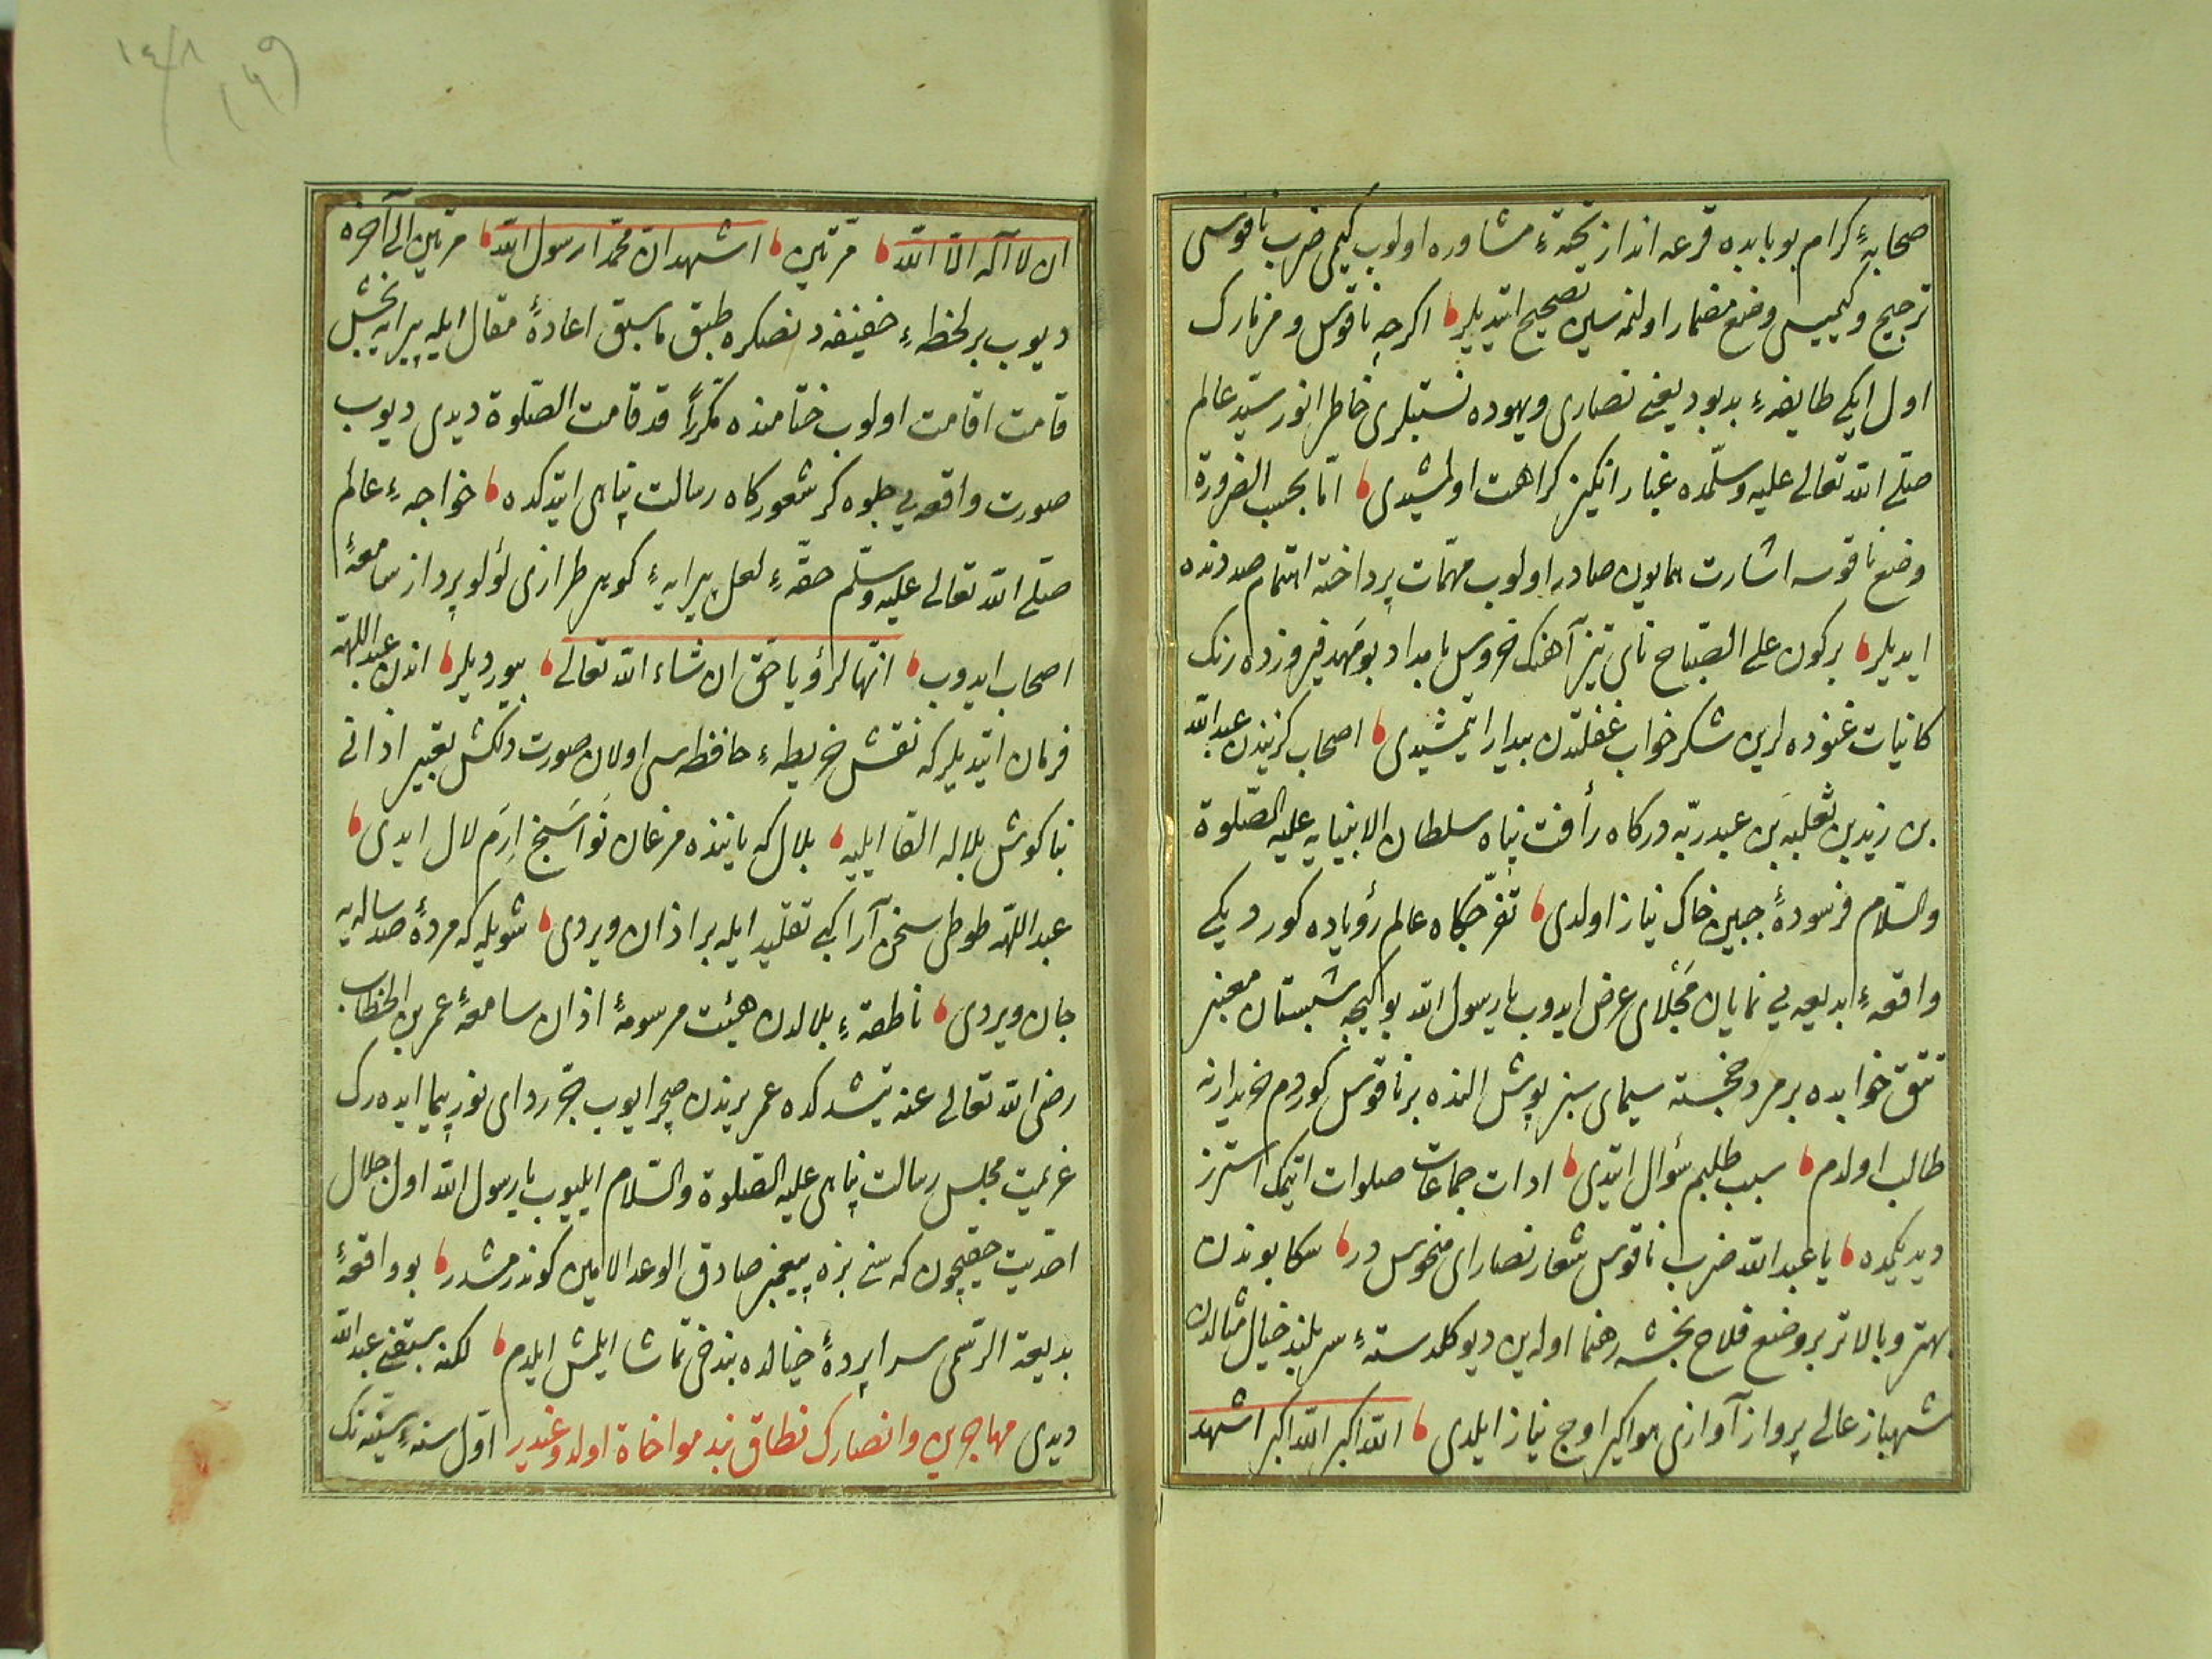 صحابهٔ كرام بو بابده قرعه انداز تختهٔ مشاوره اولوب كيمى ضرب ناقوسى
ترجيح وكيميسى وضع مضمار اولنمه سين تصحيح ايتديلر اكرچه ناقوس ومزمارك
اول ايكى طايفهٔ بدبود يعنى نصارى ويهوده نسبتلرى خاطر انور سيد عالم
صلى الله تعالى عليه وسلمده غبار انكيز كراهت اولمشيدى اما بحسب الضرورة
وضع ناقوسه اشارت همايون صادر اولوب مهمات پرداخته اهتمام صددنده
ايديلر بركون على الصباح ناى تيز آهنك خروس بامداد بو مهد فيروزه رنك
كائنات غنوده لرين شكر خواب غفلتدن بيدار ايتمشيدى اصحاب كزيندن عبد الله
بن زيد بن ثعلبه بن عبد ربه دركاه رأفت پناه سلطان الانبيايه عليه الصلوة
والسلام فرسودهٔ جبين خاك نياز اولدى تفرجكاه عالم رؤياده كوردیكى
واقعهٔ بديعه يى نمايان مجلاى عرض ايدوب يا رسول الله بو كيجه شبستان معنبر
تتق خوابده بر مرد خجسته سيماى سبز پوش النده بر ناقوس كوردم خريدارنه
طالب اولدم سبب طلبم سؤال ايتدى ادات جماعات صلوات ايتمك استرز
ديديكمده يا عبد الله ضرب ناقوس شعار نصاراى منحوس در سكا بوندن
بهتر وبالاتر بر وضع فلاح بخشه رهنما اوله ين ديو كلدستهٔ سر بلند خيال مثالدن
شهباز عالى پرواز آوازى هواكير اوج نياز ايلدى الله اكبر الله اكبر اشهد
ان لا اله الا الله مرتين اشهد ان محمدا رسول الله مرتين الى آخره
ديوب بر لحظهٔ خفيفه دنصكره طبق ما سبق اعادهٔ مقال ايله پيرايه بخش
قامت اقامت اولوب ختامنده مكررا قد قامت الصلوة ديدى ديوب
صورت واقعه يى جلوه كر شعوركاه رسالت پناهى ايتدكده خواجهٔ عالم
صلى الله تعالى عليه وسلم حقهٔ لعل پيرايهٔ كوهر طرازى لؤلؤ پرداز سامعهٔ
اصحاب ايدوب انها لرؤيا حق ان شاء الله تعالى بيورديلر اندن عبد اللهه
فرمان ايتديلر كه نقش خريطهٔ حافظه سى اولان صورت دلكش تعبير اذانى
بناكوش بلاله القا ايليه بلال كه باننده مرغان نواسنج ارم لال ايدى
عبد اللهه طوطى سخن آرا كبى تقليد ايله بر اذان ويردى شويله كه مردهٔ صد ساله يه
جان ويردى ناطقهٔ بلالدن هيئت مرسومهٔ اذان سامعهٔ عمر بن الخطاب
رضى الله تعالى عنه يتشدكده عمر يرندن صچرايوب جر رداى نور پيما ايده رك
عزيمت مجلس رسالت پناهى عليه الصلوة والسلام ايليوب يا رسول الله اول جلال
احديت حقيچون كه سنى بزه پيغمبر صادق الوعد الامين كوندرمشدر بو واقعهٔ
بديعة الرسمى سراپردهٔ خيالده بند خى تماشا ايلمش ايدم لكن سبقنى عبد الله
ديدى مهاجرين وانصارك نطاق بند مواخاة اولدوغيدر اول سنهٔ سنيه نك
١٤٨
١٤٩